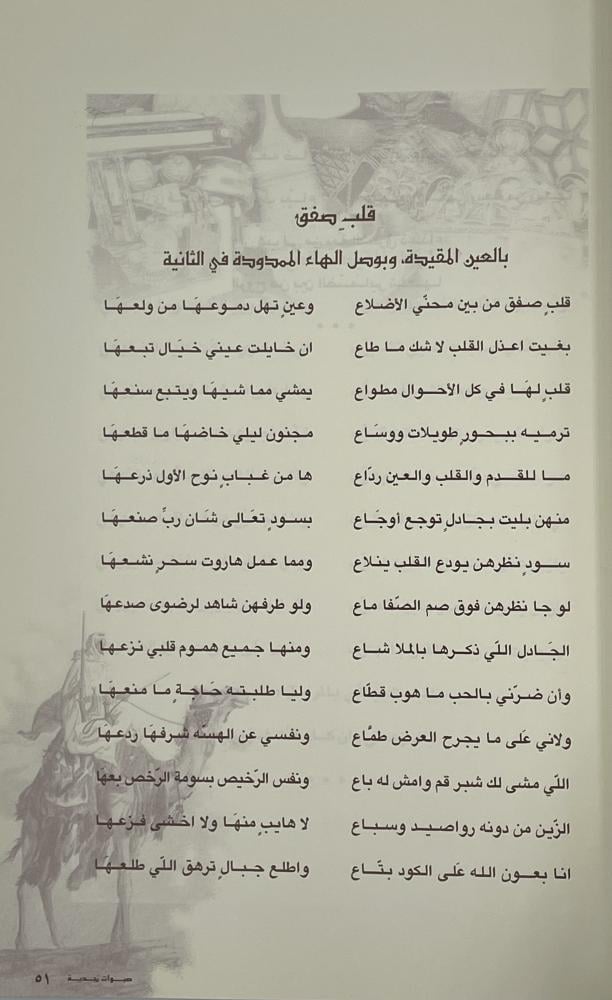 قلبٍ صفق
بالعين المقيدة، وبوصل الهاء الممدودة في الثانية
قلبٍ صفق من بين محنّي الأضلاع وعينٍ تهل دموعهَا من ولعهَا
بغيت اعذل القلب لا شك ما طاع ان خايلت عيني خيَال تبعهَا
قلبٍ لهَا في كل الأحوال مطواع يمشي مما شيهَا ويتبع سنعهَا
ترميه ببحورٍ طويلات ووسَاع مجنون ليلي خاضهَا ما قطعهَا
ما للقدم والقلب والعين ردّاع ها من غبابٍ نوح الأول ذرعهَا
منهن بليت بجادلٍ توجع أوجَاع بسودٍ تعَالى شَان ربٍّ صنعهَا
سودٍ نظرهن يودع القلب ينلاع ومما عمل هاروت سحرٍ نشعهَا
لو جا نظرهن فوق صم الصّفا ماع ولو طرفهن شاهد لرضوى صدعهَا
الجَادل اللّي ذكرها بالملا شاع ومنها جميع هموم قلبي نزعها
وأن ضرّني بالحب ما هوب قطّاع وليا طلبته حَاجةٍ ما منعهَا
ولاني عَلى ما يجرح العرض طمَّاع ونفسي عن الهسّه شرفهَا ردعهَا
اللّي مشى لك شبر قم وامش له باع ونفس الرّخيص بسومة الرّخص بعهَا
الزّين من دونه رواصيد وسباع لا هايبٍ منهَا ولا اخْشى فزعهَا
انا بعون الله عَلى الكود بتّاع واطلع جبالٍ ترهق اللّي طلعهَا
صبوات نجدية ٥١